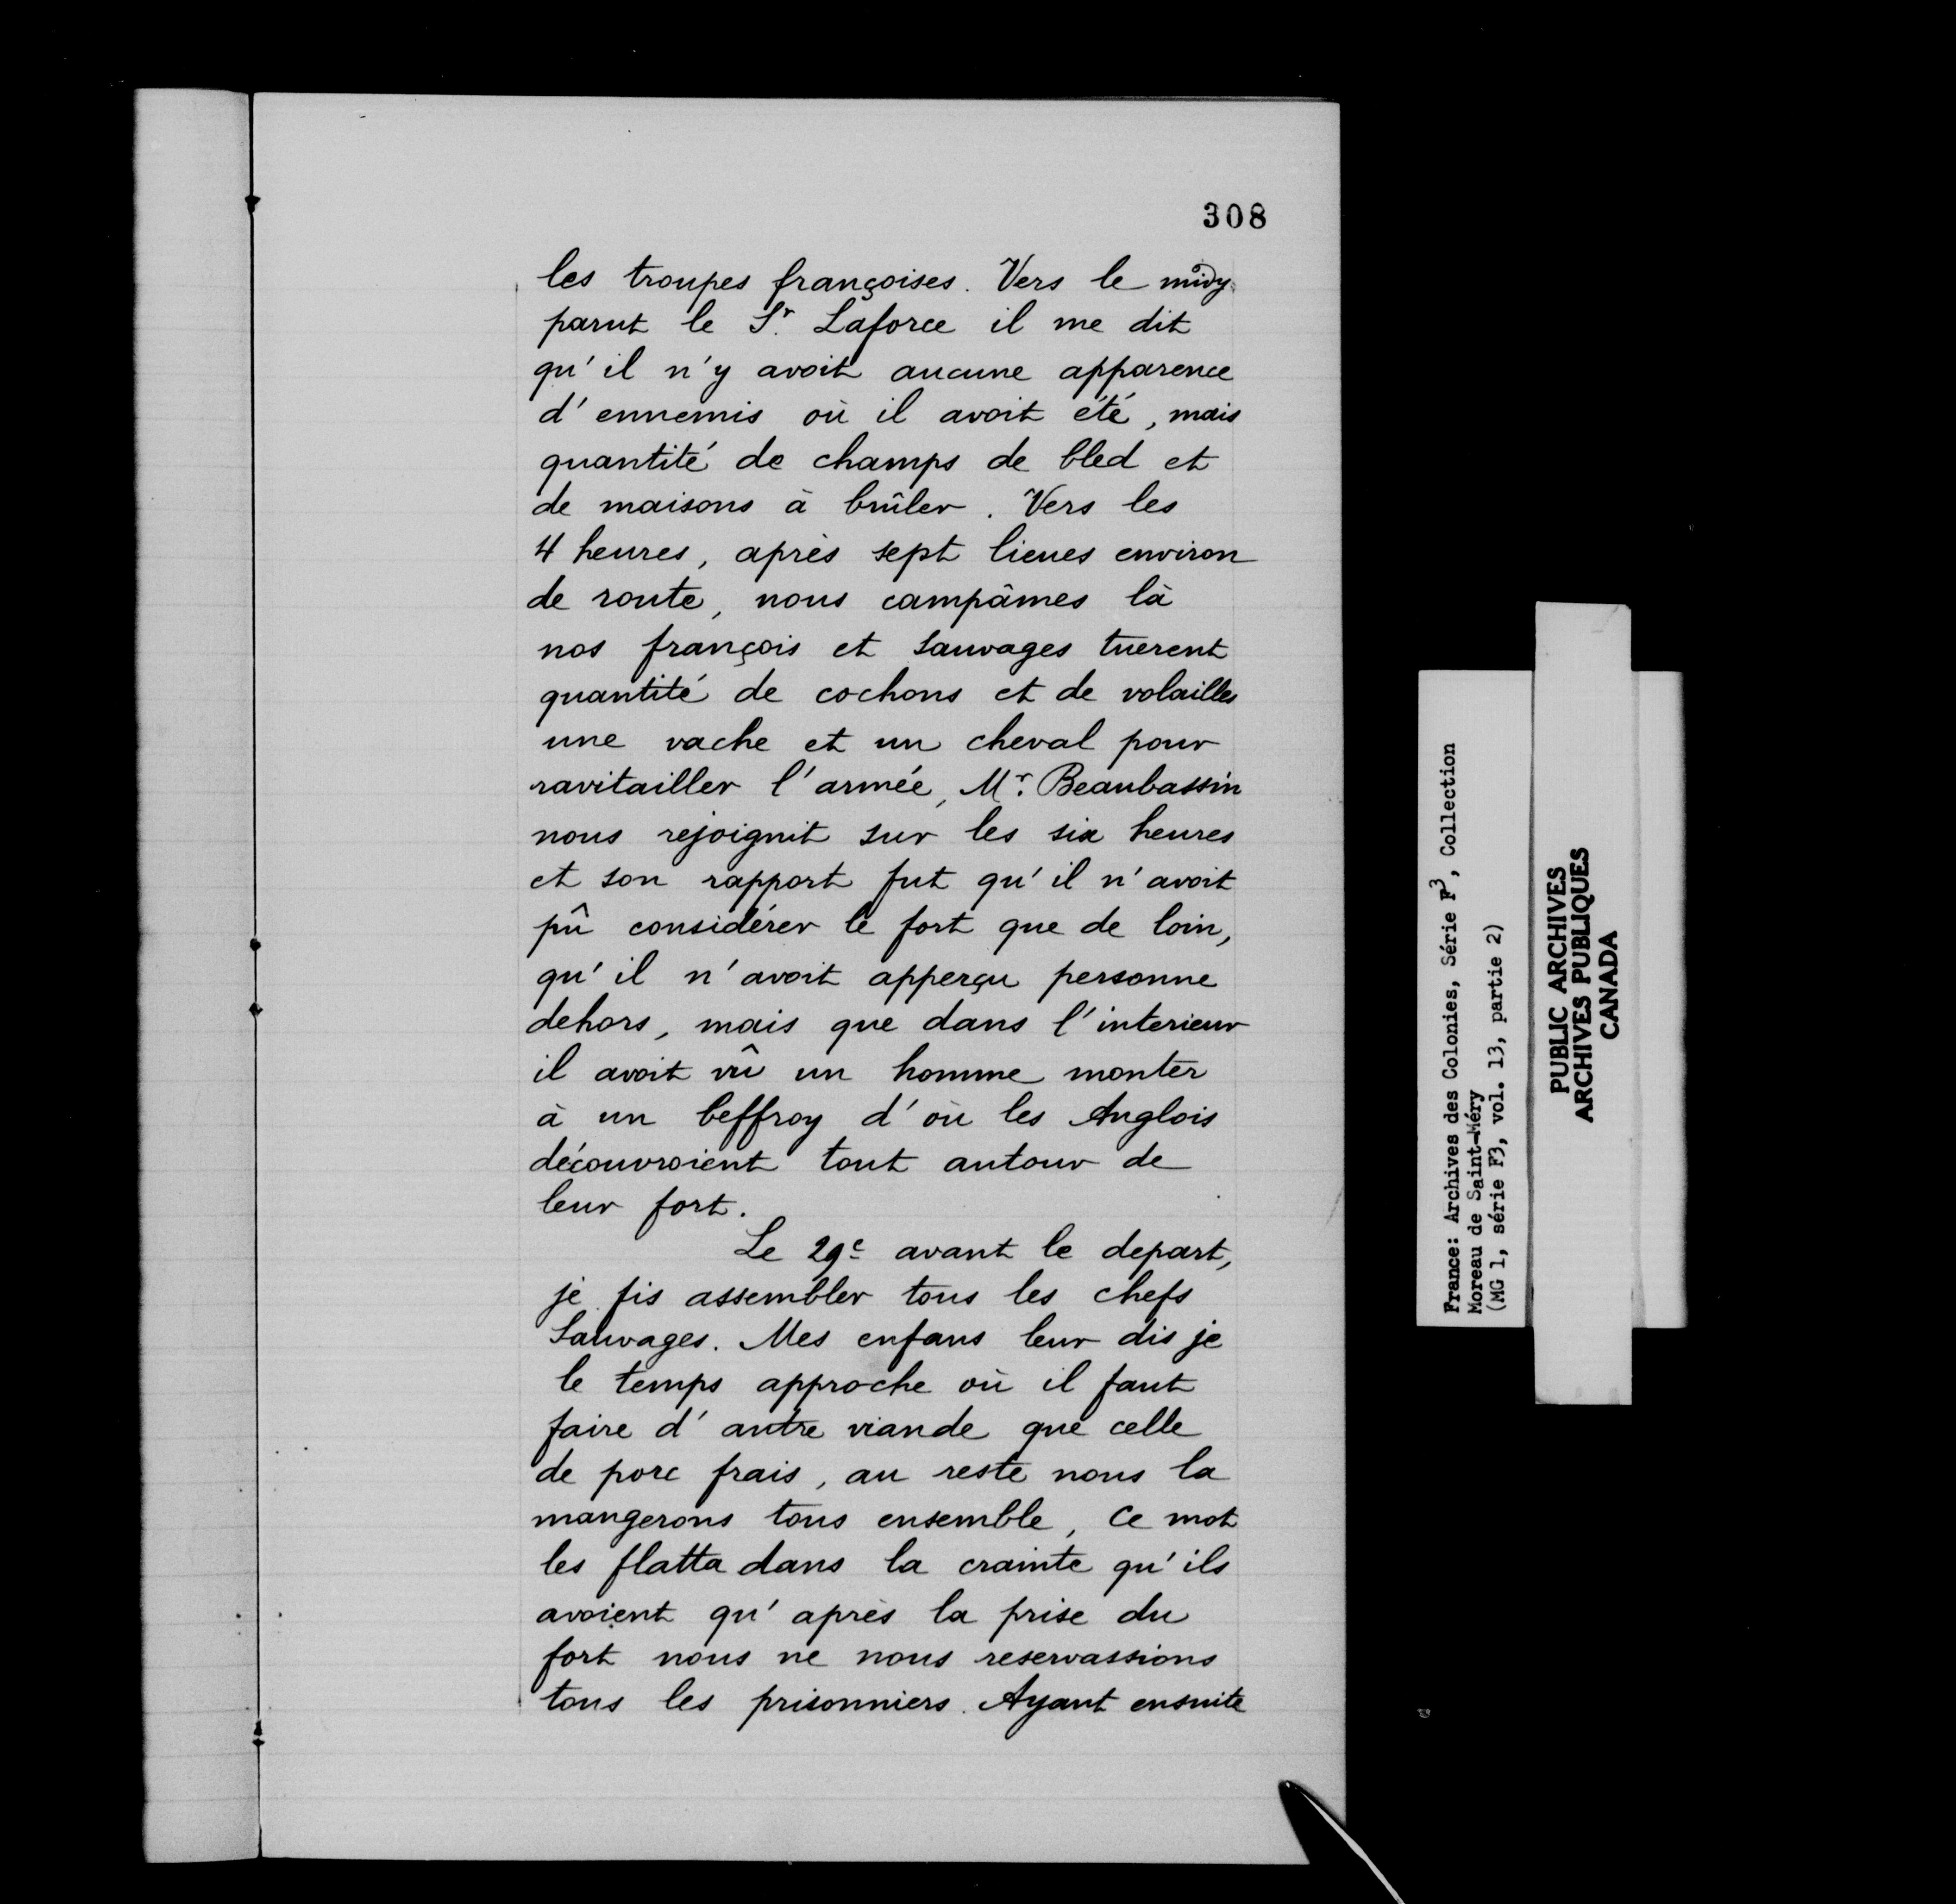 308
les troupes françoises. Vers le midy
parut le Sr. Laforce il me dit
qu'il n'y avoit aucune apparence
d'ennemis où il avoit été, mais
quantité de champs de bled et
de maisons à brûler. Vers les
4 heures, après sept lieues environ
de route, nous campâmes là
nos françois et Sauvages tuerent
quantité de cochons et de volailles
une vache et un cheval pour
ravitailler l'armée, Mr. Beaubassin
nous rejoignit sur les six heures
et son rapport fut qu'il n'avoit
pû considérer le fort que de loin,
qu'il n'avoit apperçu personne
dehors, mais que dans l'interieur
il avoit vû un homme monter
à un beffroy d'où les Anglois
découvroient tout autour de
leur fort.
Le 29e avant le depart,
je fis assembler tous les chefs
Sauvages. Mes enfans leur dis je
le temps approche où il faut
faire d'autre viande que celle
de porc frais, au reste nous la
mangerons tous ensemble, Ce mot
les flatta dans la crainte qu'ils
avoient qu'après la prise du
fort nous ne nous reservassions
tous les prisonniers. Ayant ensuite
France: Archives des Colonies, Série F3, Collection
Moreau de Saint-Méry
(MG 1, série F3, vol. 13, partie 2)
PUBLIC ARCHIVES
ARCHIVES PUBLIQUES
CANADA